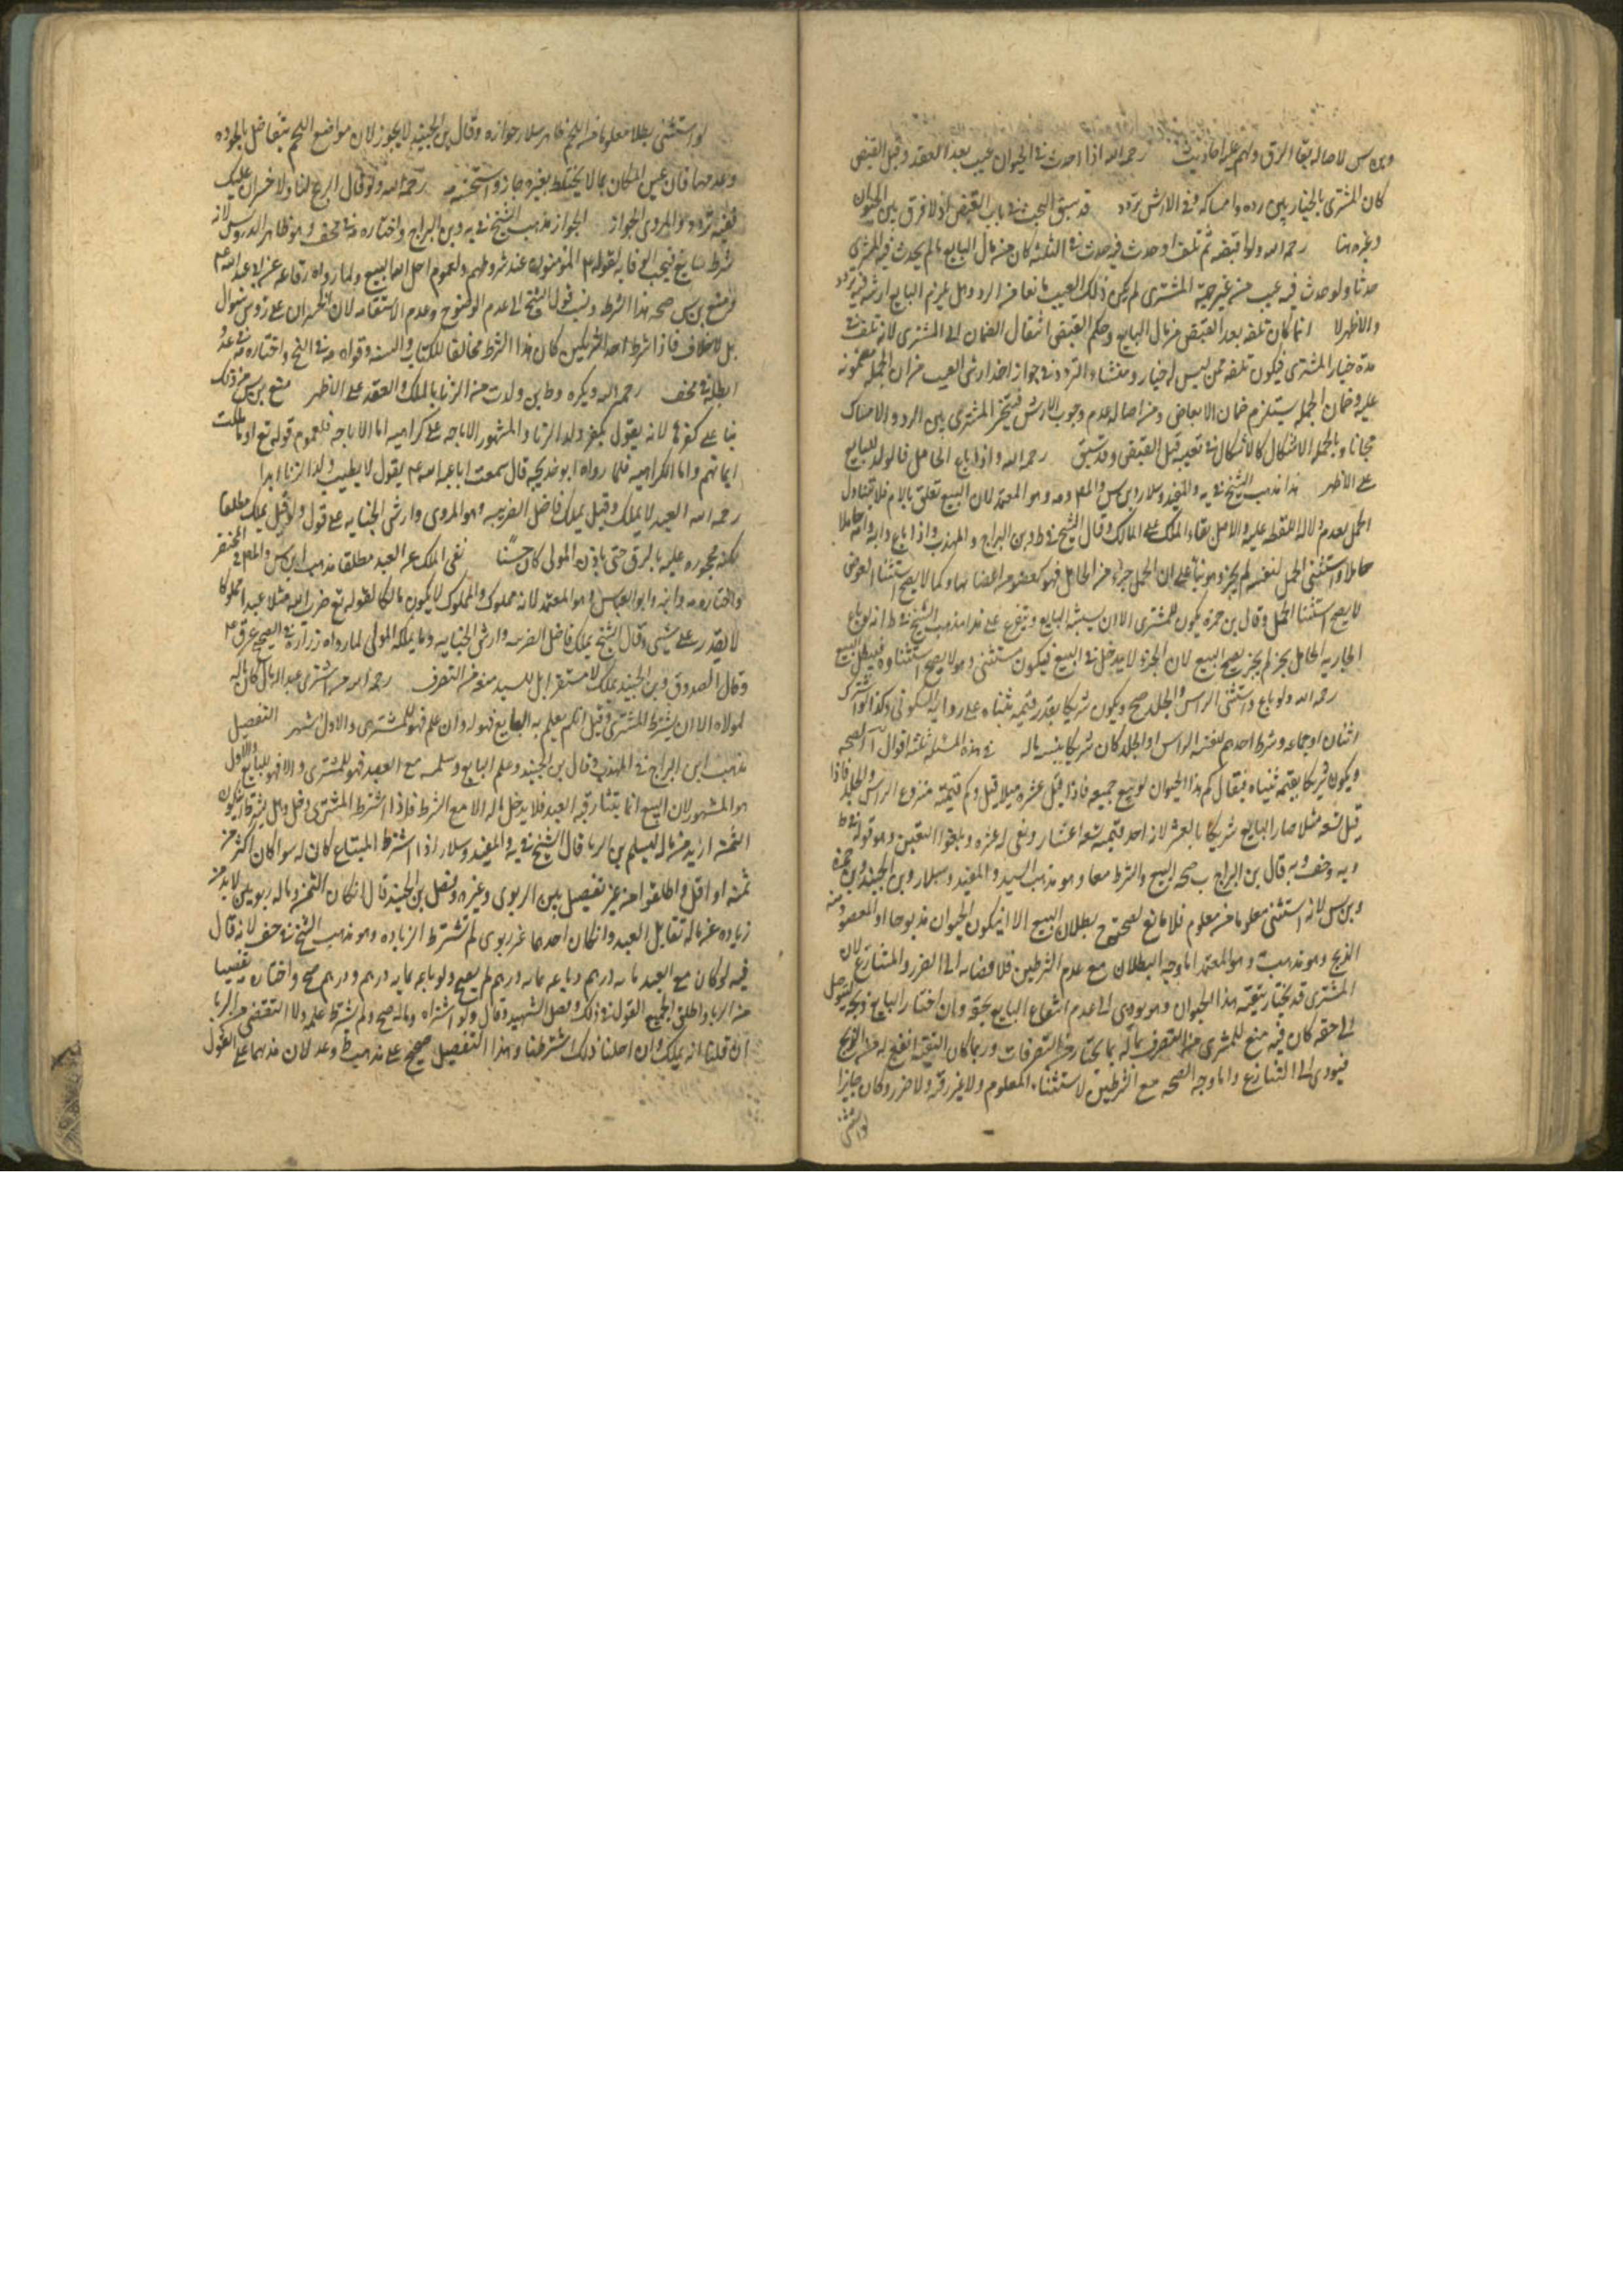 وبن س لاصاله بقا الرق ولهم عليه احاديث رحمه الله اذا احدث في الحيوان عيب بعد العقد وقبل القبض
كان المشترى بالخيار بين رده وامساكه وفي الارش تردد قد سبق البحث في باب القبض اذ لا فرق بين الحيوان
وغيره هنا رحمه الله ولو اقبضه ثم تلف او حدث فيه حدث في الثلثه كان من مال البايع ما لم يحدث فيه المشترى
حدثا ولو حدث فيه عيب من غير جهة المشترى لم يكن ذلك العيب مانعا من الرد وهل يلزم البايع ارشه فيه تردد
والاظهر لا انما كان تلفه بعد القبض من مال البايع وحكم القبض انتقال الضمان الى المشترى لانه تلف في
مدة خيار المشترى فيكون تلفه ممن ليس له خيار ومنشاء التردد في جواز اخذ ارش العيب من ان الجمله مضمونه
عليه وضمان الجمله يستلزم ضمان الابعاض ومن اصاله عدم وجوب الارش فيتخير المشترى بين الرد والامساك
مجانا وبالجمله الاشكال كالاشكال في تعيبه قبل القبض وقد سبق رحمه الله واذا باع الحامل فالولد للبايع
على الاظهر هذا مذهب الشيخ في يه والمفيد وسلار وبن س والمص ومه وهو المعتمد لان البيع تعلق بالام فلا يتناول
الحمل لعدم دلالة اللفظ عليه والاصل بقاء الملك على المالك وقال الشيخ في ط وبن البراج في المهذب واذا باع دابة وامة حاملا
حاملا واستثنى الحمل لنفسه لم يجز وهو بناء على ان الحمل جزء من الحامل فهو كعضو من اعضائها وكما لا يصح استثنا العضو
لا يصح استثنا الحمل وقال بن حمزه يكون للمشترى الا ان يستثنيه البايع ويتفرع على هذا مذهب الشيخ في ط انه لو باع
الجاريه الحامل بحر لم يجز يصح البيع لان الحر لا يدخل في البيع فيكون مستثنى وهو لا يصح استثناوه فيبطل البيع
رحمه الله ولو باع واستثنى الراس والجلد صح ويكون شريكا بقدر قيمة ثنياه على رواية السكوني وكذا لو اشترك
اثنان او جماعه وشرط احدهم لنفسه الراس او الجلد كان شريكا بنسبة ماله في هذه المسئله ثلثه اقوال ا الصحه
ويكون شريكا بقيمة ثنياه فيقال كم هذا الحيوان لو بيع جميعه فاذا قيل عشره مثلا قيل وكم قيمته منزوع الراس والجلد فاذا
قيل تسعه مثلا صار البايع شريكا بالعشر لانه احد قيمته تسعه اعشار وبقى له عشر وهو قوله في ط
ويه وخف وبه قال بن البراج ب صحه البيع والشرط معا وهو مذهب السيد والمفيد وسلار وبن الجنيد وبن حمزه
وبن س لانه استثنى معلوما من معلوم فلا مانع لصحته ج بطلان البيع الا ان يكون الحيوان مذبوحا او المقصود منه
الذبح وهو مذهب وهو المعتمد اما وجه البطلان مع عدم الشرطين فلافضائه الى الضرر والتنازع لان
المشترى قد يختار تبقيه هذا الحيوان وهو يودى الى عدم انتفاع البايع بحقه وان اختار البايع ذبحه ليتوصل
الى حقه كان فيه منع للمشترى من التصرف بماله بما يختار من التصرفات وربما كان التبقيه انفع له من الذبح
فيودى الى التنازع واما وجه الصحه مع الشرطين لاستثناء المعلوم ولا غرر فيه ولا ضرر وكان جايزا
ولو استثنى
لو استثنى رطلا معلوما من اللحم ظاهر سلار جوازه وقال بن الجنيد لا يجوز لان مواضع اللحم يتفاضل بالجوده
وعدمها فان عين المكان بما لا يختلط بغيره جاز واستحسنه مه رحمه الله ولو قال الربح لنا ولا خسران عليك
ففيه تردد والمروى الجواز الجواز مذهب الشيخ في يه وبن البراج واختاره مه في مخف وهو ظاهر الدروس لانه
شرط سايغ فيجب الوفا به لقوله ع المؤمنون عند شروطهم ولعموم احل الله البيع ولما رواه رفاعه عن ابى عبد الله ع
ومنع بن س صحه هذا الشرط ونسب قول الشيخ الى عدم الوضوح وعدم الاستقامه لان الخسران على روس الاموال
بلا خلاف فاذا شرط احد الشريكين كان هذا الشرط مخالفا للكتاب والسنه وقواه مه في التح واختاره في عد
ابطله في مخف رحمه الله ويكره وطى من ولدت من الزنا بالملك والعقد على الاظهر منع بن س من ذلك
بنا على كفرها لانه يقول بكفر ولد الزنا والمشهور الاباحه على كراهيه اما الاباحه فلعموم قوله تع او ما ملكت
ايمانهم واما الكراهيه فلما رواه ابو خديجه قال سمعت ابا عبد الله ع يقول لا يطيب ولد الزنا ابدا
رحمه الله العبد لا يملك وقيل يملك فاضل الضريبه وهو المروى وارش الجنايه على قول ولو قيل يملك مطلقا
لكنه محجور عليه بالرق حتى ياذن المولى كان حسنا نفى الملك عن العبد مطلقا مذهب بن س والمص في المختصر
واختاره مه وابنه وابو العباس وهو المعتمد لانه مملوك والمملوك لا يكون مالكا لقوله تع ضرب الله مثلا عبدا مملوكا
لا يقدر على شيء وقال الشيخ يملك فاضل الضريبه وارش الجنايه وما يملكه المولى لما رواه زراره في الصحيح عن ق ع
وقال الصدوق وبن الجنيد يملك لا مستقرا بل للسيد منعه من التصرف رحمه الله من اشترى عبدا له مال كان ماله
لمولاه الا ان يشترطه المشترى وقيل ان لم يعلم به البايع فهو له وان علم فهو للمشترى والاول اشهر التفصيل
مذهب ابن البراج في المهذب وقال بن الجنيد وعلم البايع وسلمه مع العبد فهو للمشترى والا فهو للبايع والاول
هو المشهور لان البيع انما يتناول رقبه العبد فلا يدخل ماله الا مع الشرط فاذا اشترط المشترى دخل وهل يشترط ان يكون
الثمن ازيد من ماله ليسلم من الربا قال الشيخ في يه والمفيد وسلار اذا اشترط المبتاع كان له سوا كان اكثر من
ثمنه او اقل واطلقوا من غير تفصيل بين الربوى وغيره وفصل بن الجنيد قال ان كان الثمن وماله ربويين لابد من
زياده عن ماله تقابل العبد وان كان احدهما غير ربوى لم تشترط الزياده وهو مذهب الشيخ في خف لانه قال
فيه لو كان مع العبد مايه درهم وباعه بمايه درهم لم يصح ولو باعه بمايه درهم ودرهم صح واختاره مه تفصيا
من الربا واطلق الجميع القول في ذلك وفصل الشهيد وقال ولو اشتراه وماله صح ولم يشترط علمه ولا التفصي من الربا
ان قلنا انه يملك وان احلنا ذلك اشترطنا وهذا التفصيل صحيح على مذهب ط وعد لان مذهبهما على القول